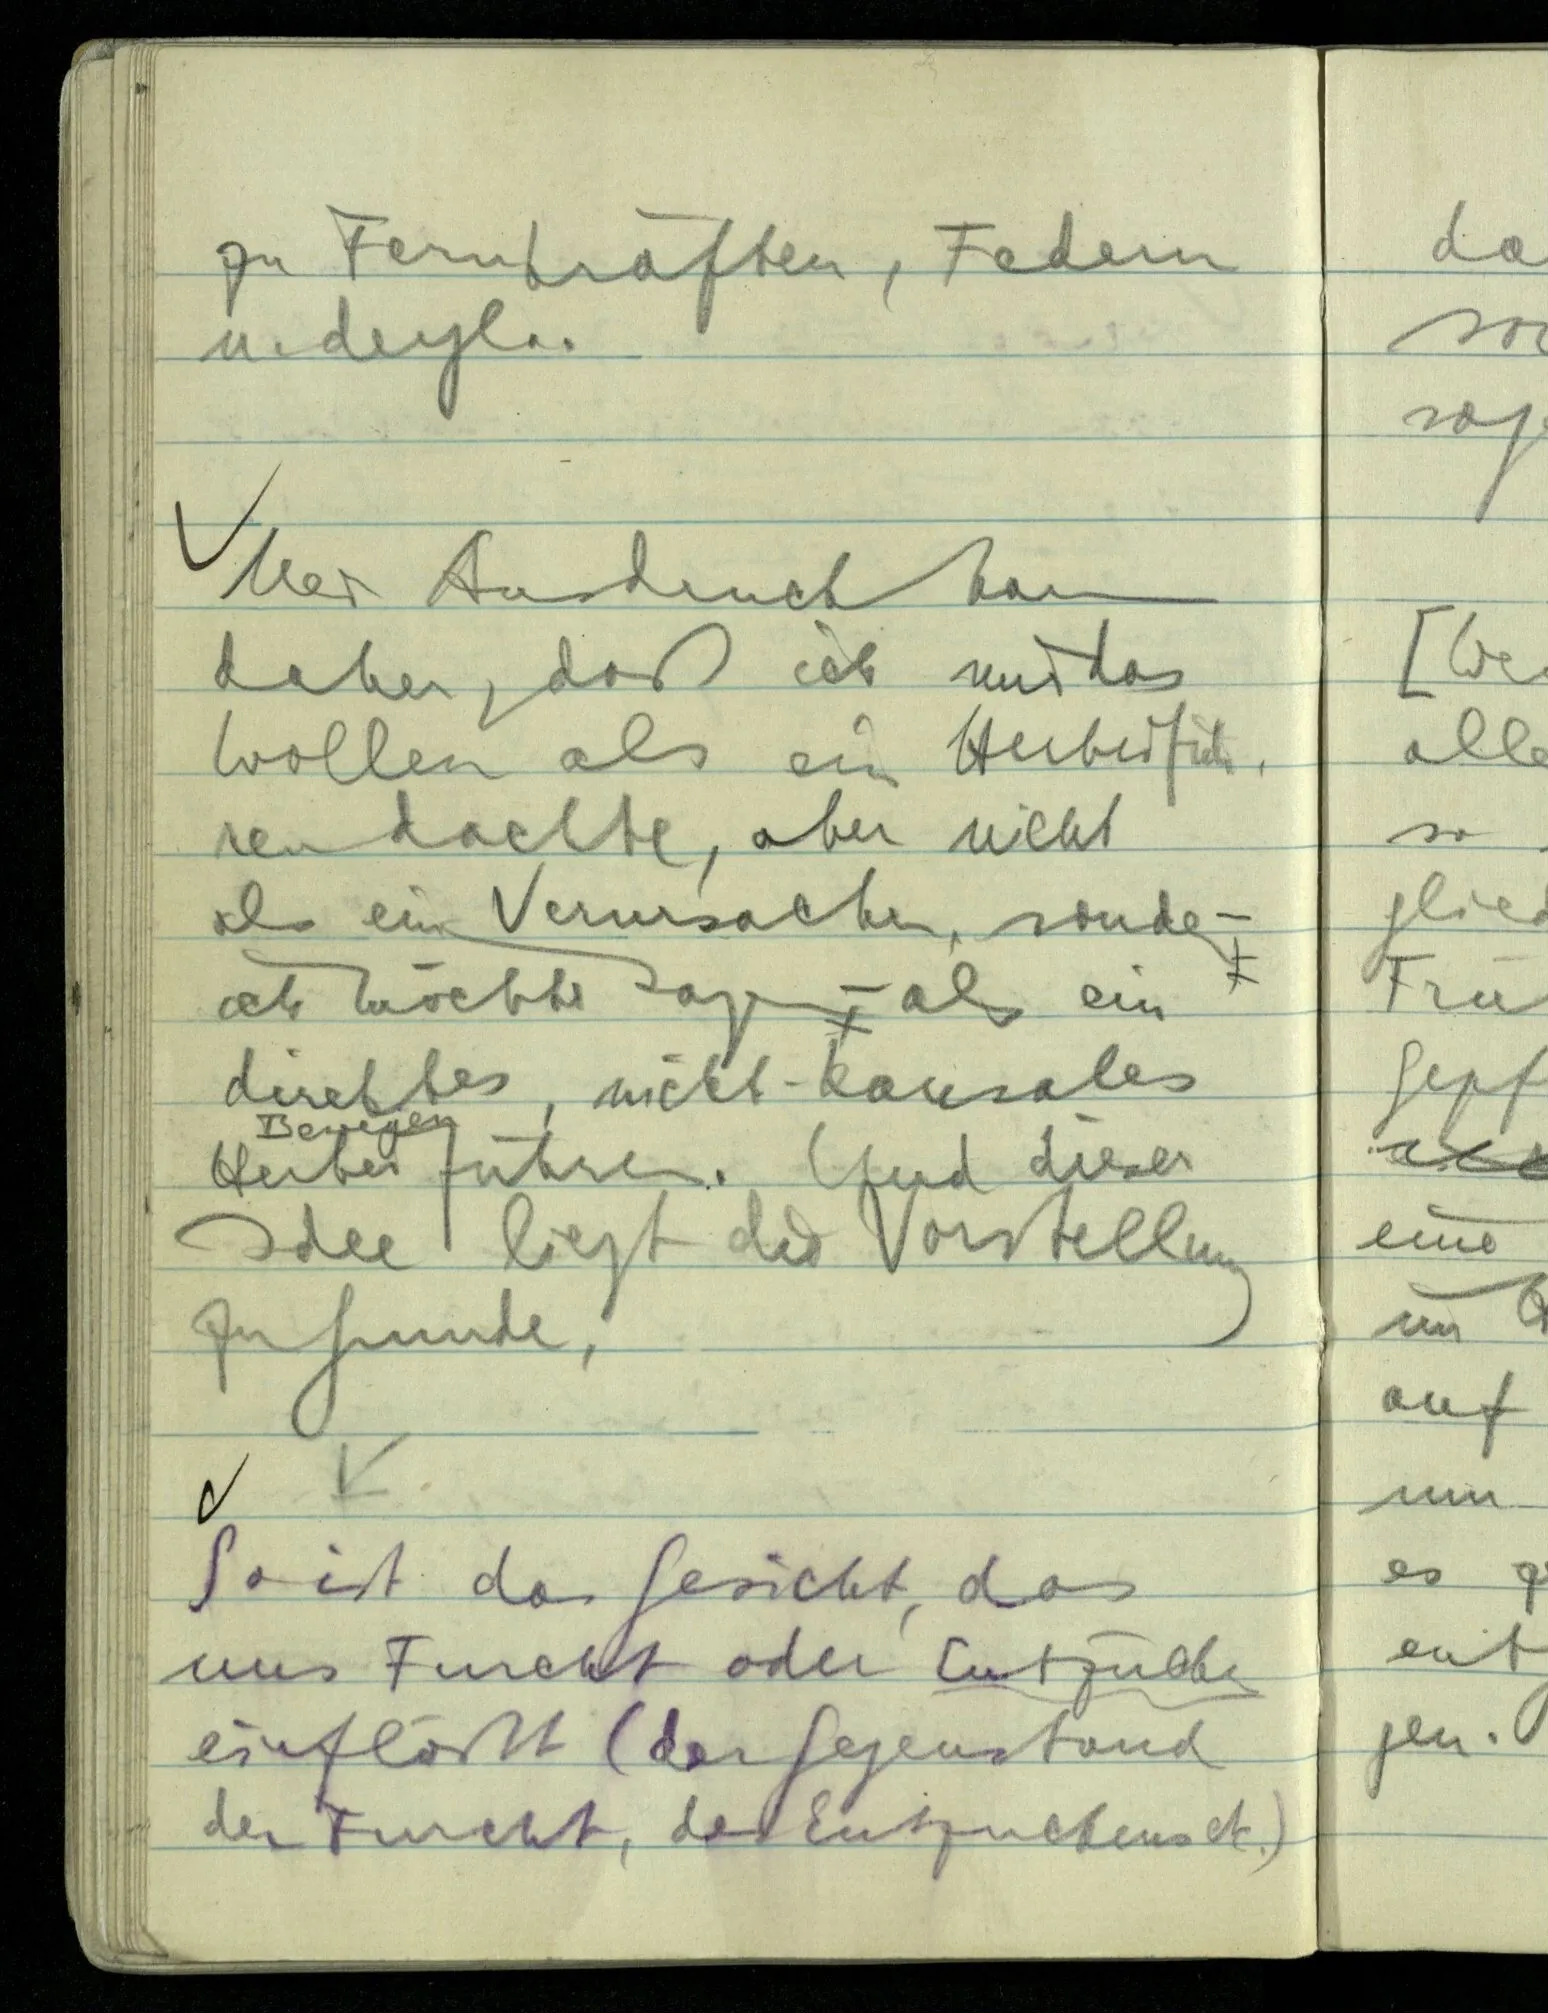 zu Fernkräften, Federn
u. dergl..
Der Ausdruck kam
daher, daß ich mir das
Wollen als ein Herbeifüh-
ren dachte, aber nicht
als ein Verursachen, sonde
ich möchte sagen – als ein
direktes, nicht-kausales
Bewegen
Herbeiführen. Und dieser
Idee liegt die Vorstellung
zu Grunde,
So ist das Gesicht, das
uns Furcht oder Entzücken
einflößt (der Gegenstand
der Furcht, des Entzückens etc.)
da
so
sage
[We
alle
so
glied
Frü
gepf
eine
im
auf
nun
es
ent
gen.